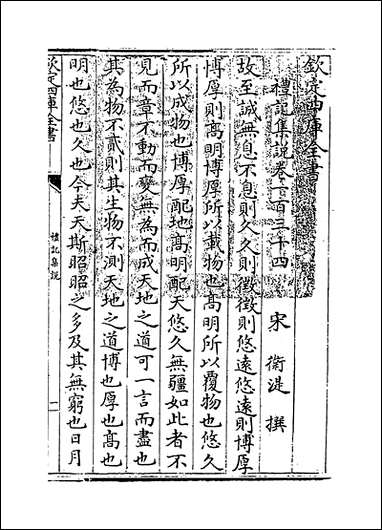 欽定四庫全書
禮記集說卷一百三十四
宋 衛湜 撰
故至誠無息不息則久久則徵徵則悠遠悠遠則博厚
博厚則髙明博厚所以載物也髙明所以覆物也悠久
所以成物也博厚配地髙明配天悠久無疆如此者不
見而章不動而變無為而成天地之道可一言而盡也
其為物不貳則其生物不測天地之道博也厚也髙也
明也悠也久也今夫天斯昭昭之多及其無窮也日月
欽定四庫全書
禮記集說